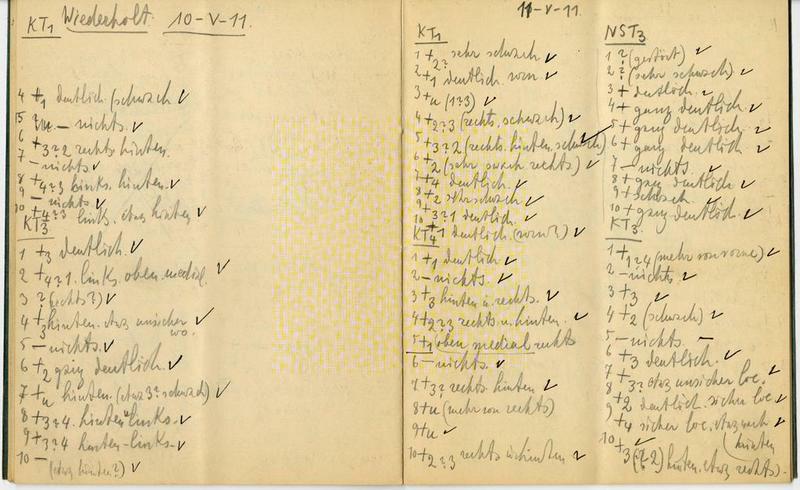 KT1 Wiederholt. 10-V-11.
4 +1 deutlich. (schwach ✓
5 ? – nichts. ✓
6 +3?2 rechts hinten.
7 – nichts ✓
8 +4?3 links. hinten. ✓
9 – nichts ✓
10 +4?3 links. etwas hinten ✓
KT3
1 +3 deutlich. ✓
2 +4?1. links. oben. medial. ✓
3 ? (rechts?) ✓
4 +3 hinten. etwas unsicher ✓
wo.
5 – nichts. ✓
6 +2 ganz deutlich. ✓
7 +u hinten. (etwas 3? schwach) ✓
8 +3?4. hinten links. ✓
9 +3?4 hinten-links. ✓
10 –
(etwas hinten?) ✓
11-V-11.
KT1
1 +2? sehr schwach ✓
2 +1 deutlich. vorn ✓
3 +u (1?3) ✓
4 +2?3 (rechts. schwach) ✓
5 +3?2 (rechts. hinten. schwach) ✓
6 +2 (sehr schwach. rechts) ✓
7 +4 deutlich. ✓
8 +2 sehr schwach ✓
9 +3?1 deutlich. ✓
10 +1 deutlich (vorn?) ✓
KT4
1 +1 deutlich ✓
2 – nichts. ✓
3 +3 hinten u. rechts. ✓
4 +2?3 rechts u. hinten. ✓
5 +1 oben medial rechts
6 – nichts. ✓
7 +3? rechts hinten ✓
8 +u (mehr von rechts)
9 +u ✓
10 +2?3 rechts u. hinten ✓
NST3
1 ? (gestört) ✓
2 ? (sehr schwach) ✓
3 + deutlich. ✓
4 + ganz deutlich. ✓
5 + ganz deutlich. ✓
6 + ganz deutlich ✓
7 – nichts. ✓
8 + ganz deutlich ✓
9 + schwach. ✓
10 + ganz deutlich. ✓
KT3.
1 +1?4 (mehr von vorne) ✓
2 – nichts ✓
3 +3 ✓
4 +2 (schwach) ✓
5 – nichts.
6 +3 deutlich. ✓
7 +3? etwas unsicher loc. ✓
8 +2 deutlich. sicher loc ✓
9 +4 sicher loc. etwas nach ✓
(hinten
10 +3 (?2) hinten. etwas rechts).